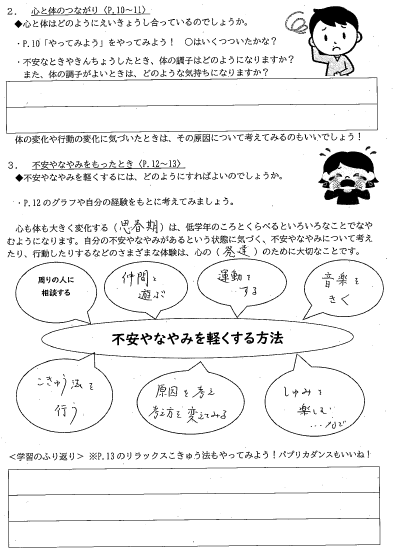 2． 心と体のつながり〈P.10～11〉
◆心と体はどのようにえいきょうし合っているのでしょうか。
・P.10「やってみよう」をやってみよう！ ○はいくつついたかな？
・不安なときやきんちょうしたとき、体の調子はどのようになりますか？
また、体の調子がよいときは、どのような気持ちになりますか？
体の変化や行動の変化に気づいたときは、その原因について考えてみるのもいいでしょう！
3． 不安やなやみをもったとき〈P.12～13〉
◆不安やなやみを軽くするには、どのようにすればよいのでしょうか。
・P.12のグラフや自分の経験をもとに考えてみましょう。
心も体も大きく変化する（思春期）は、低学年のころとくらべるといろいろなことでなや
むようになります。自分の不安やなやみがあるという状態に気づく、不安やなやみについて考え
たり、行動したりするなどのさまざまな体験は、心の（発達）のために大切なことです。
周りの人に
相談する
仲間と
遊ぶ
運動を
する
音楽を
きく
不安やなやみを軽くする方法
こきゅう法を
行う
原因を考え
考え方を変えてみる
しゅみを
楽しむ
…など
＜学習のふり返り＞ ※P.13のリラックスこきゅう法もやってみよう！パプリカダンスもいいね！